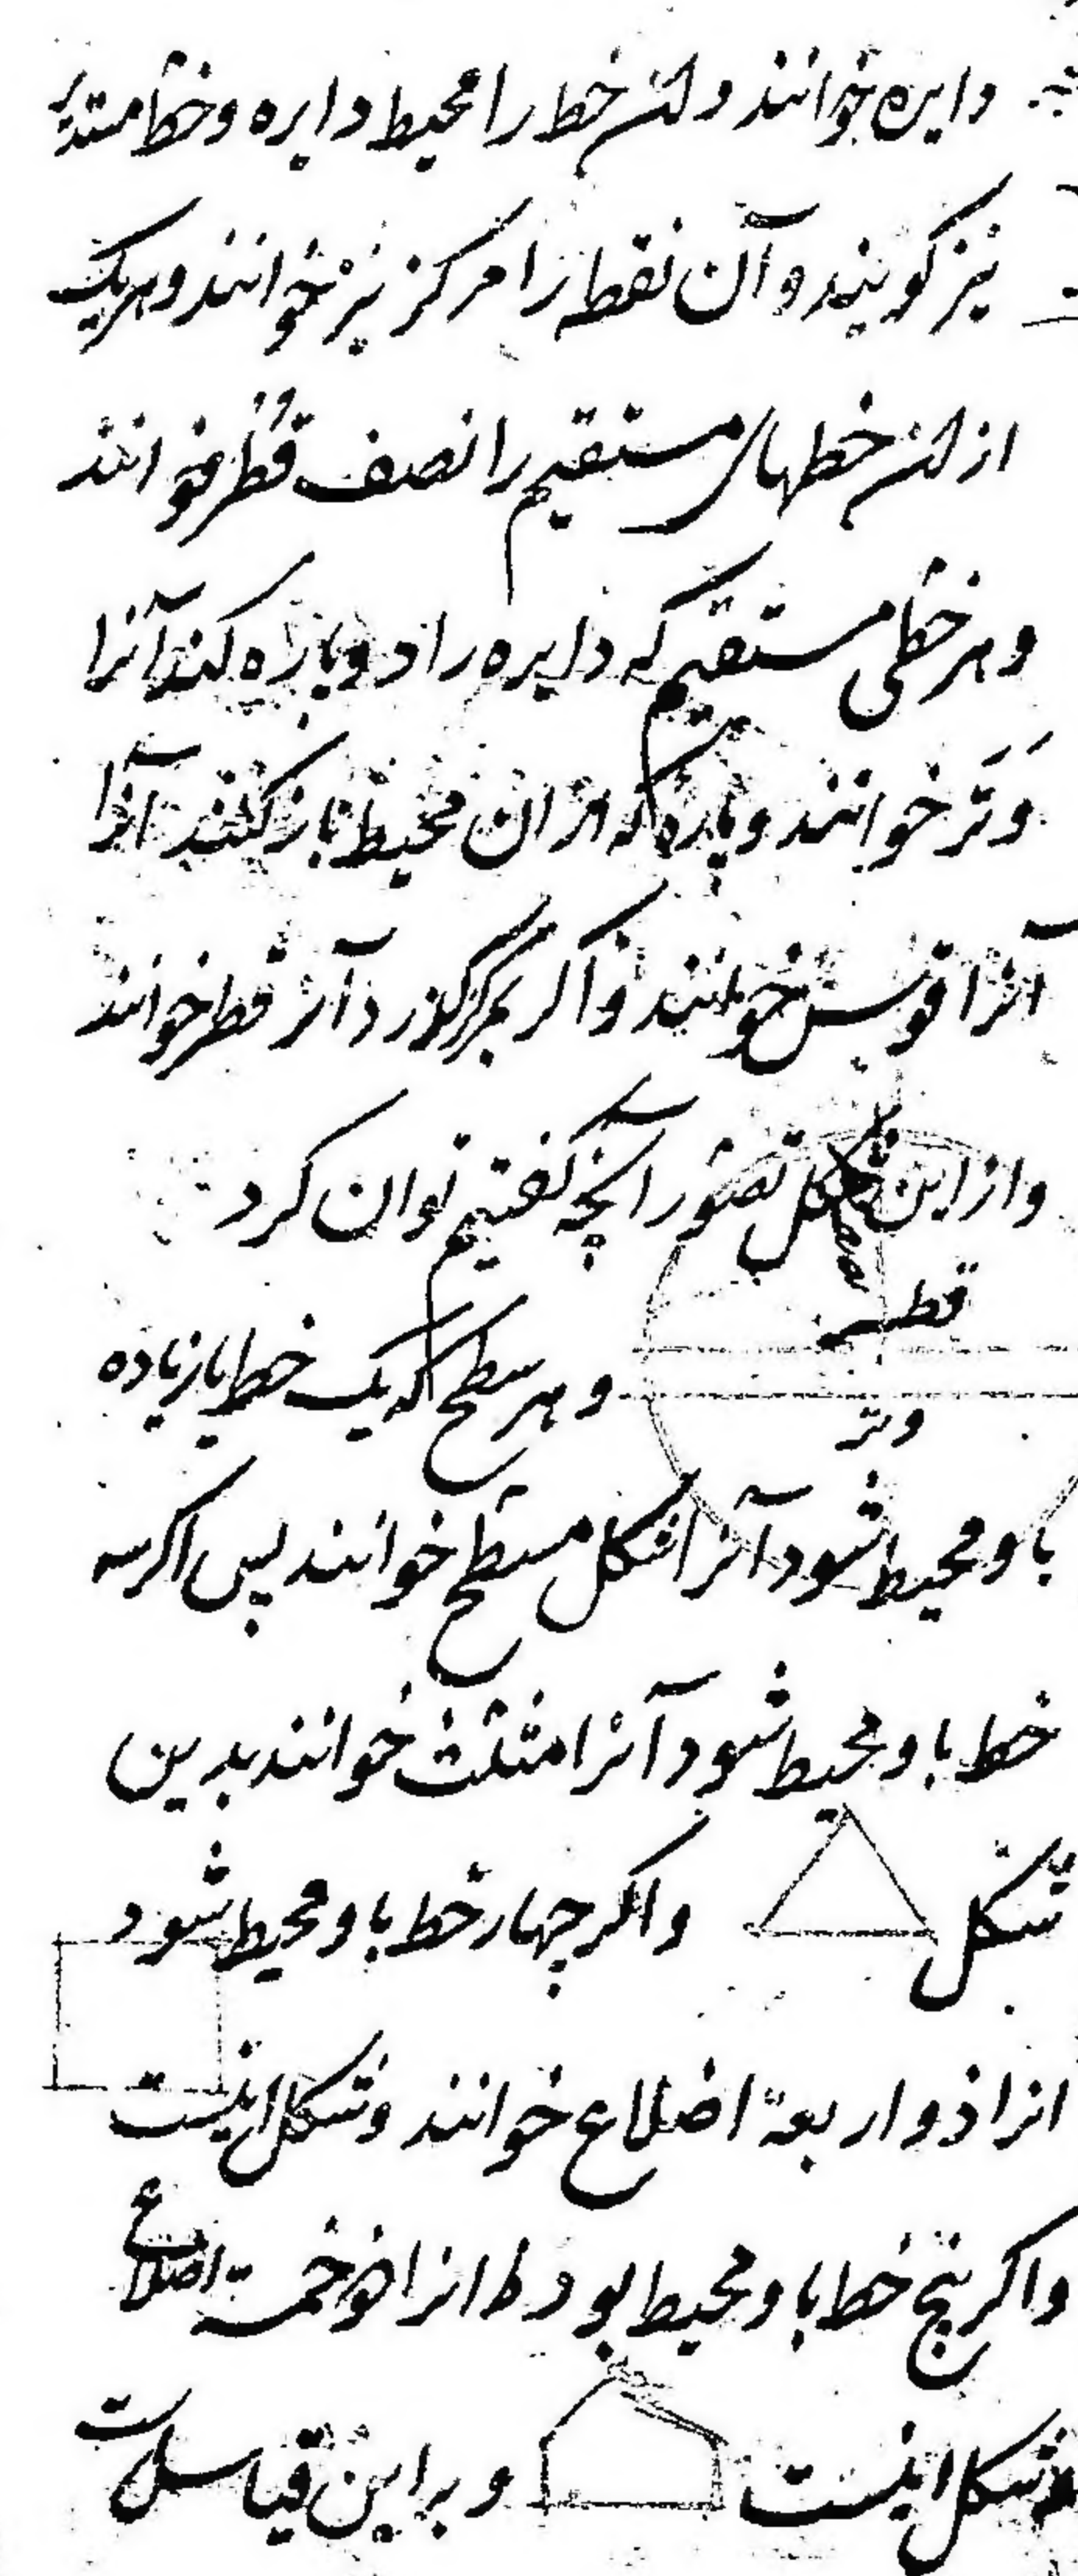 دایره خوانند و آن خط را محیط دایره و خط مستدیر
نیز کویند و آن نقطه را مرکز نیز خوانند و هریک
از آن خطهای مستقیم را نصف قُطر خوانند
و هر خطی مستقیم که دایره را دو پاره کند آنرا
وَتَر خوانند و پاره که از آن محیط باز کنند آنرا
آنرا قوس خوانند و اکر بمرکز کذرد آنرا قطر خوانند
و از این شکل تصوّر آنچه کفتیم توان کرد
قطر
و هر سطح که یک خط یا زیاده
وتر
باو محیط شود آنرا شکل مسطّح خوانند پس اکر سه
خط باو محیط شود آنرا مثلّث خوانند بدین
شکل واکر چهار خط باو محیط شود
انرا ذو اربعة اضلاع خوانند و شکل اینست
واکر پنج خط باو محیط بود انرا ذو خمسة اضلاع
شکل اینست و براین قیاس